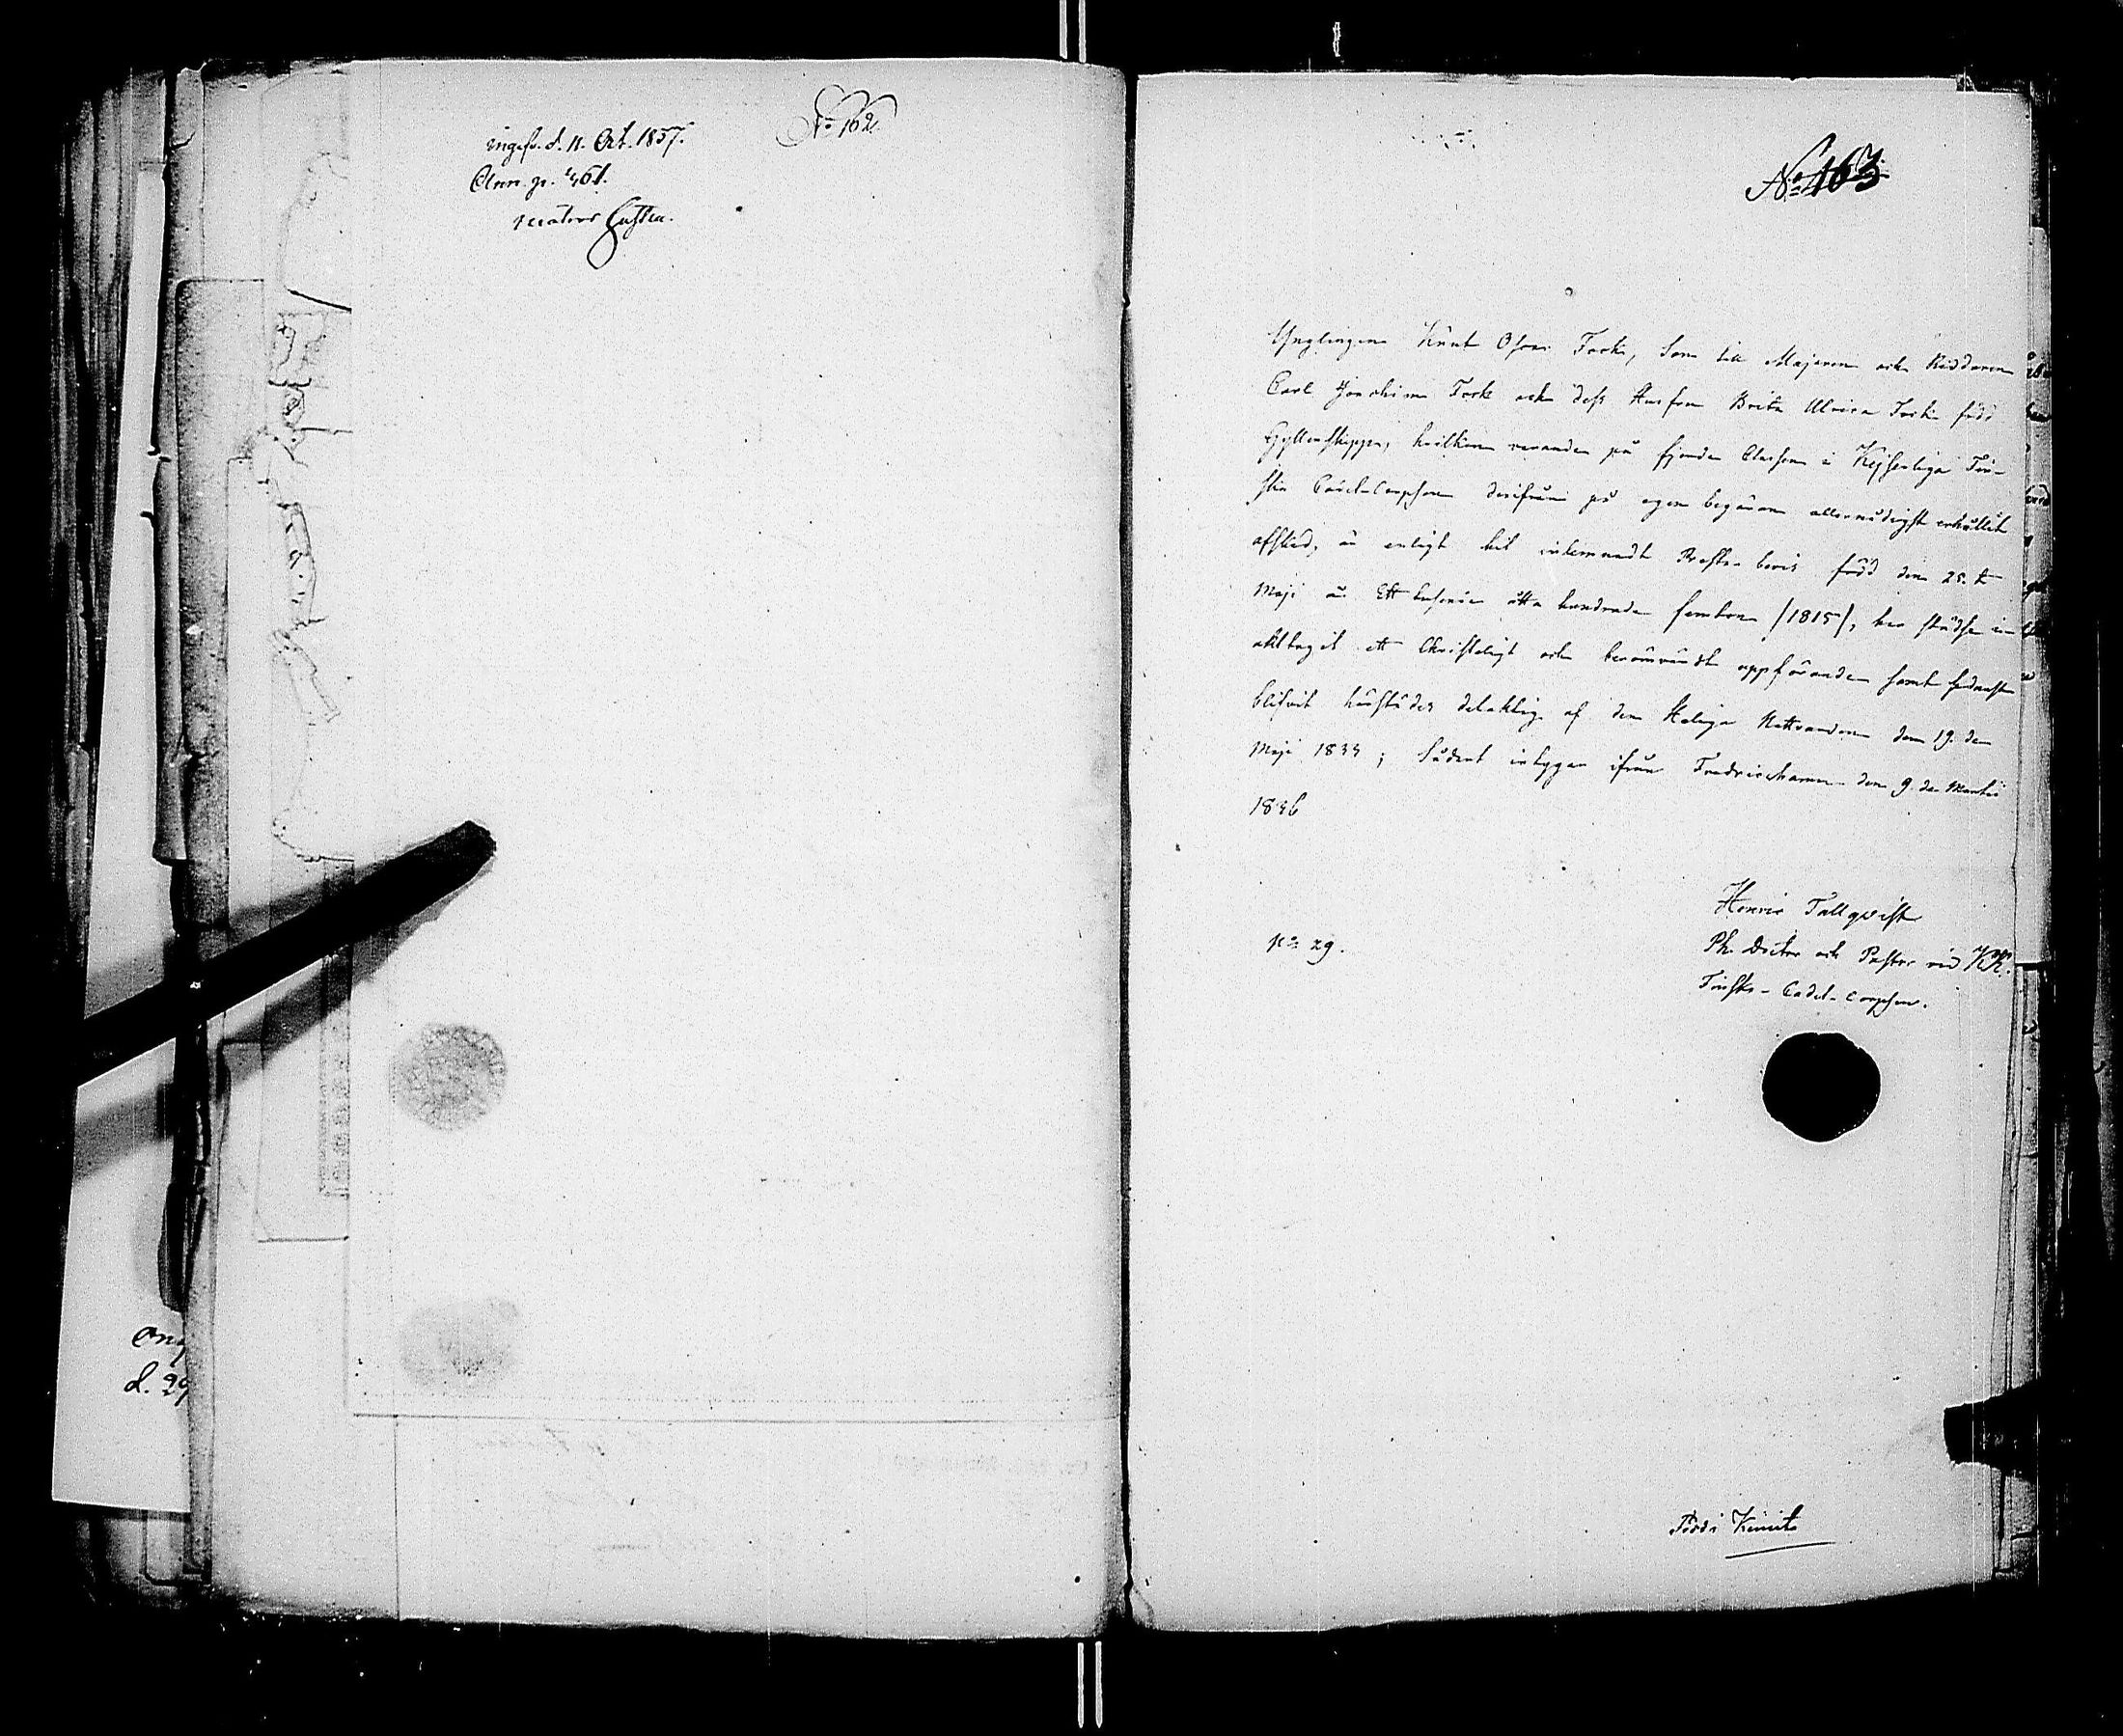 ingaf. d. 11. Oct. 1837.
Ann. p. 461.
No 162.
No 163
Ynglingen Knut Oscar Fock, Son till Majoren och Riddaren
Carl Joachim Fock och dess Husfru Brita Ulrica Fock född
Gyllenskepp, hvilken varande på fjerde Classen i Kejserliga Fin-
ska Cadet-Corpsen derifrån på egen begäran allernådigst erhållit
afsked, är enligt hit inlemnadt Preste-bevis född den 25.te
Maji år Ett tusende åtta hundrade femton (1815), har städse i
akttagit ett Christeligt och berömvärdt uppförande samt sednast
blifvit härstädes delaktig af den Heliga Nattvarden den 19. de
Maji 1835; Sådant intygar ifrån Fredricshamn den 9. de Martii
1836
Henric Tallqvist
No 29.
Ph. Doctor och Pastor vid KK.
Finska-Cadet-Corpsen.
Född i Kimito
d. 29